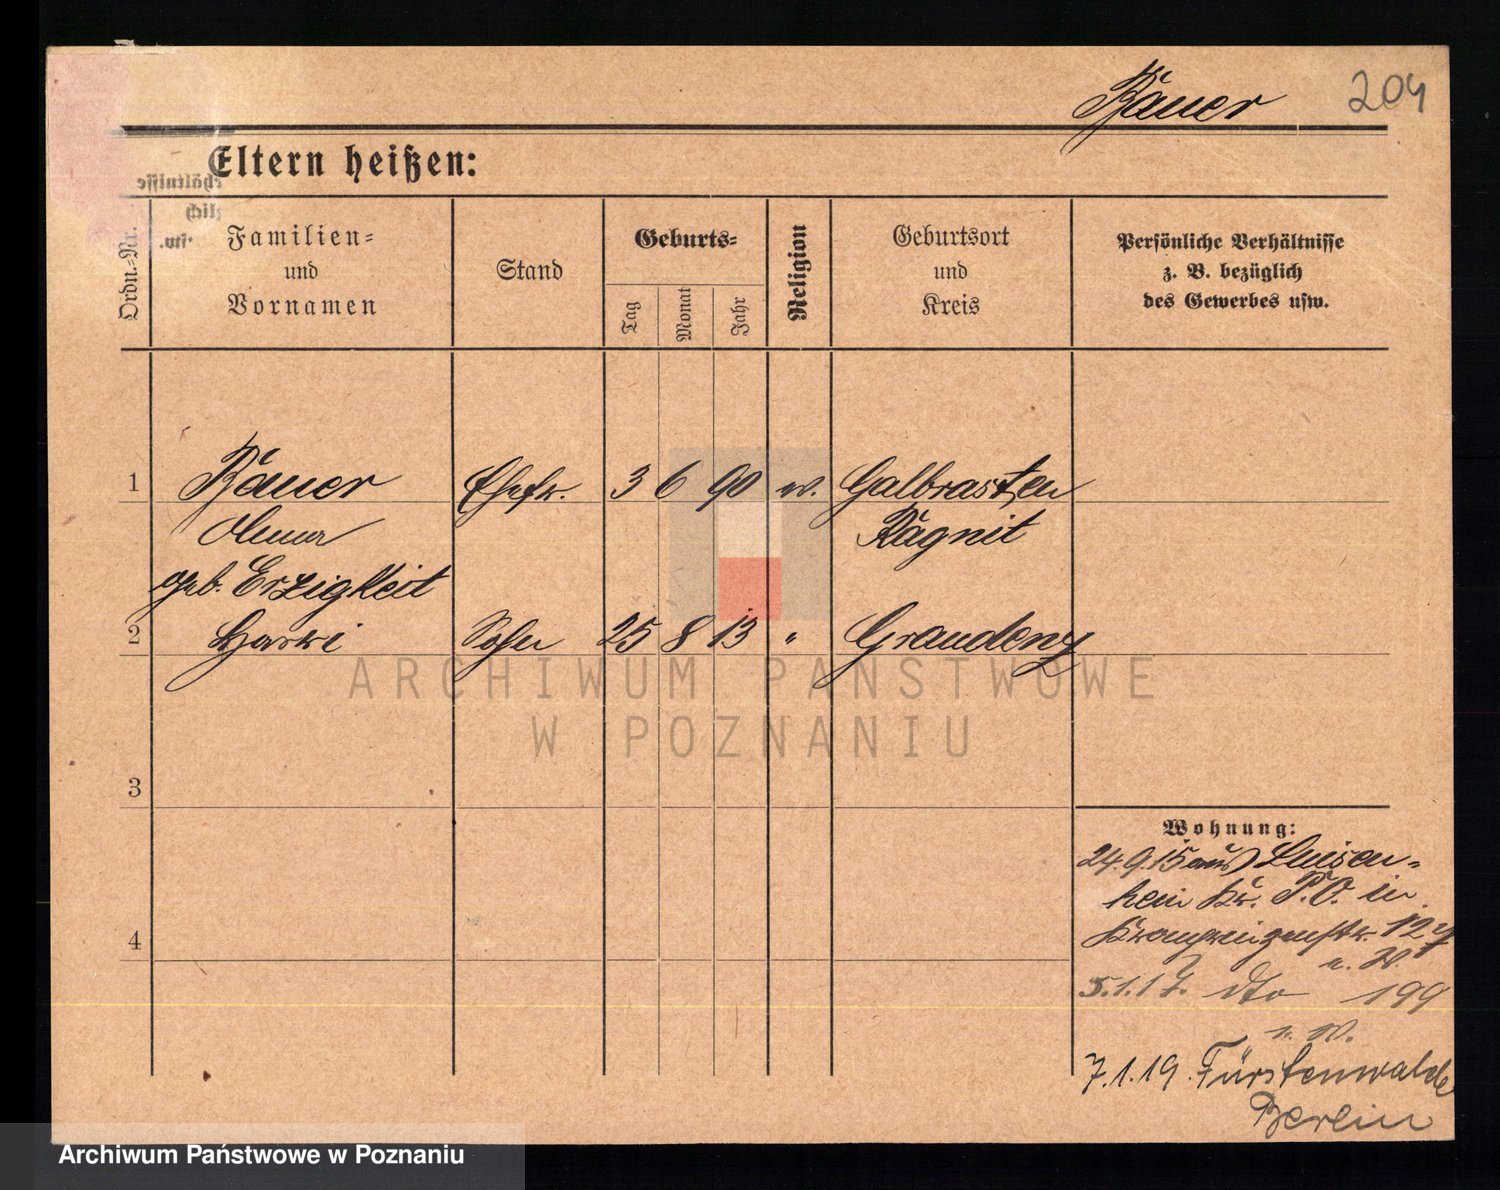 Bäuer 204
Eltern heißen:
Ordn.-Nr.
Familien-
und
Vornamen
Stand
Geburts-
Tag
Monat
Jahr
Religion
Geburtsort
und
Kreis
Persönliche Verhältnisse
z. B. bezüglich
des Gewerbes usw.
1 Bäuer Ehefr. 3 6 90 ev. Galbrasten
Ragnit
geb. Erzigkeit
2 Sohn 25 8 13 " Graudenz
3
4
Wohnung:
24.9.15 aus Luisen-
hain Kr. P.O. in
5.1.17. dto 199
n. W.
7.1.19. Fürstenwalde
Berlin
ARCHIWUM PAŃSTWOWE
W POZNANIU
Archiwum Państwowe w Poznaniu